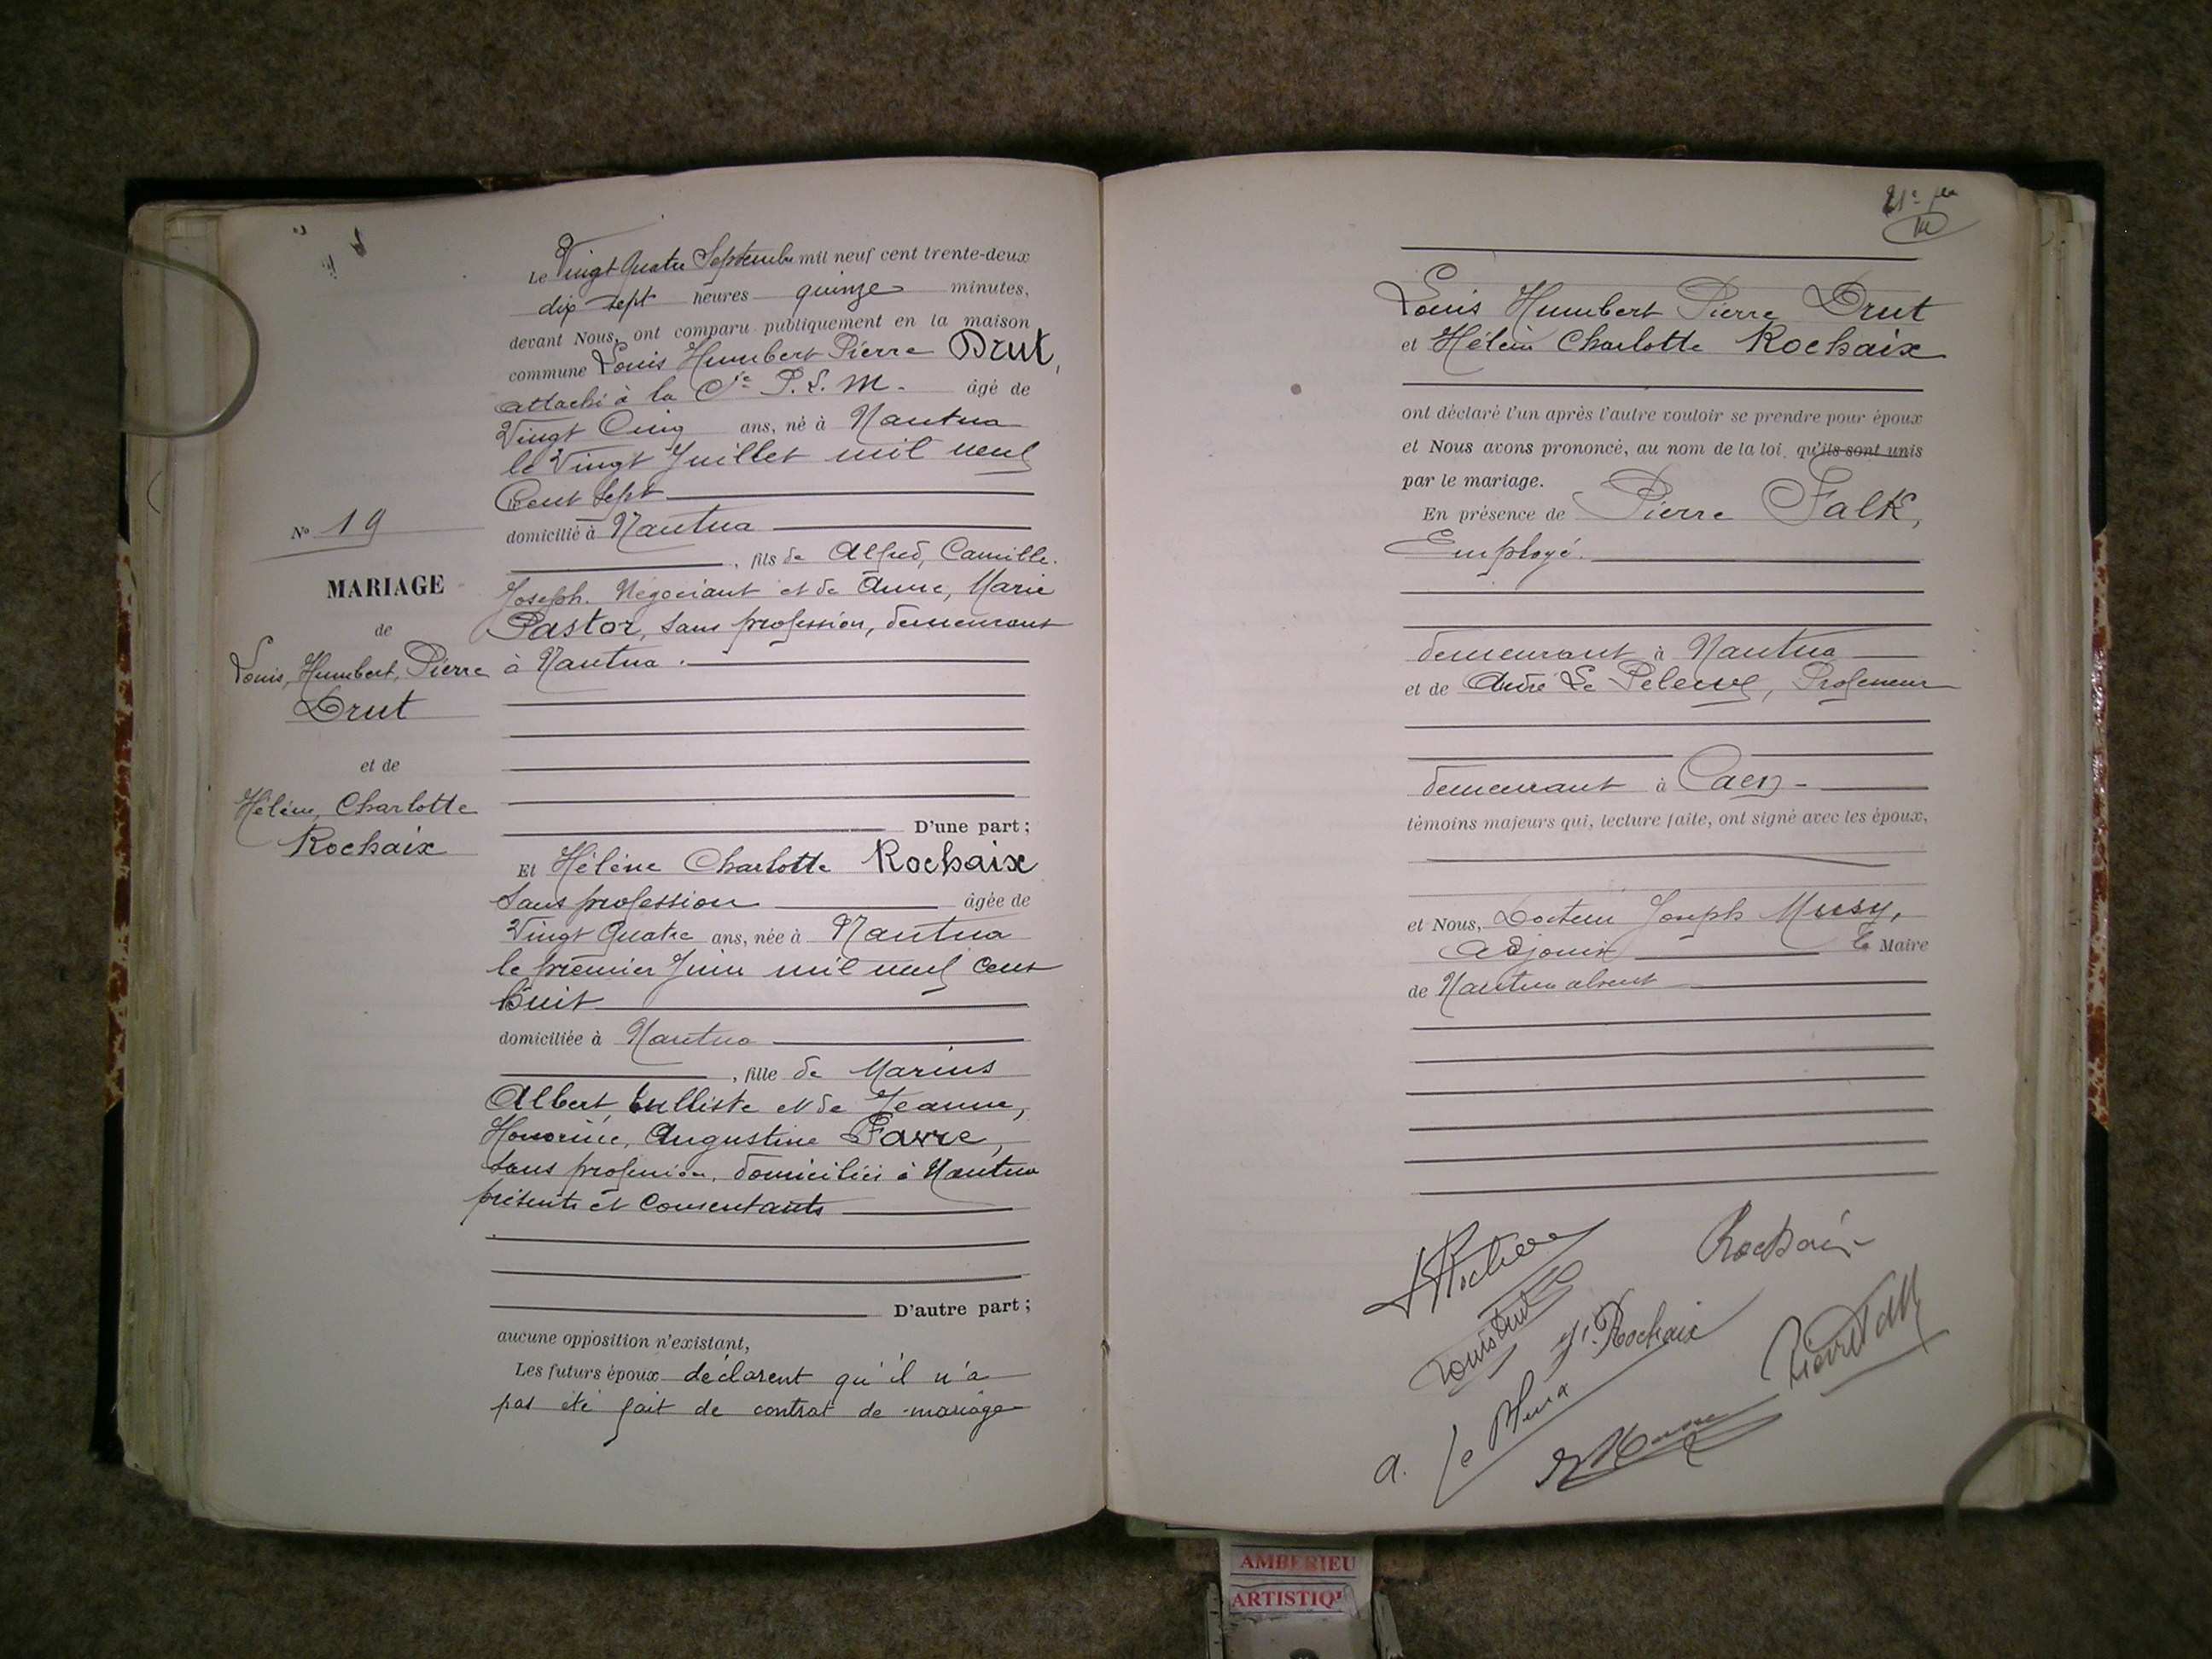 Le Vingt Quatre Septembre mil neuf cent trente-deux
dix sept heures quinze minutes,
devant Nous, ont comparu publiquement en la maison
commune Louis Humbert Pierre Drut,
attaché à la Cie P. L. M. âgé de
Vingt Cinq ans, né à Nantua
le Vingt Juillet mil neuf
Cent Sept
domicilié à Nantua
, fils de Alfred, Camille.
Joseph. Négociant et de Anne, Marie
Pastor, sans profession, demeurant
à Nantua.
D'une part ;
Et Hélène Charlotte Rochaix
Sans profession âgée de
Vingt Quatre ans, née à Nantua
le premier Juin mil neuf cent
huit
domiciliée à Nantua
, fille de Marius
Albert, tulliste et de Jeanne,
Honorine, Augustine Favre,
sans profession, domiciliés à Nantua
présents et consentants
D'autre part ;
aucune opposition n'existant,
Les futurs époux déclarent qu'il n'a
pas été fait de contrat de mariage
No 19
MARIAGE
de
Louis, Humbert, Pierre
Drut
et de
Hélène, Charlotte
Rochaix
Louis Humbert Pierre Drut
et Hélène Charlotte Rochaix
ont déclaré l'un après l'autre vouloir se prendre pour époux
et Nous avons prononcé, au nom de la loi, qu'ils sont unis
par le mariage.
En présence de Pierre Falk,
Employé.
demeurant à Nantua
et de André Le Peleux, Professeur
demeurant à Caen
témoins majeurs qui, lecture faite, ont signé avec les époux,
et Nous, Docteur Joseph Mussy,
adjoint le Maire
de Nantua absent
Rochaix
Louis Drut
H. Rochaix
Pierre Falk
AMBERIEU
ARTISTIQ